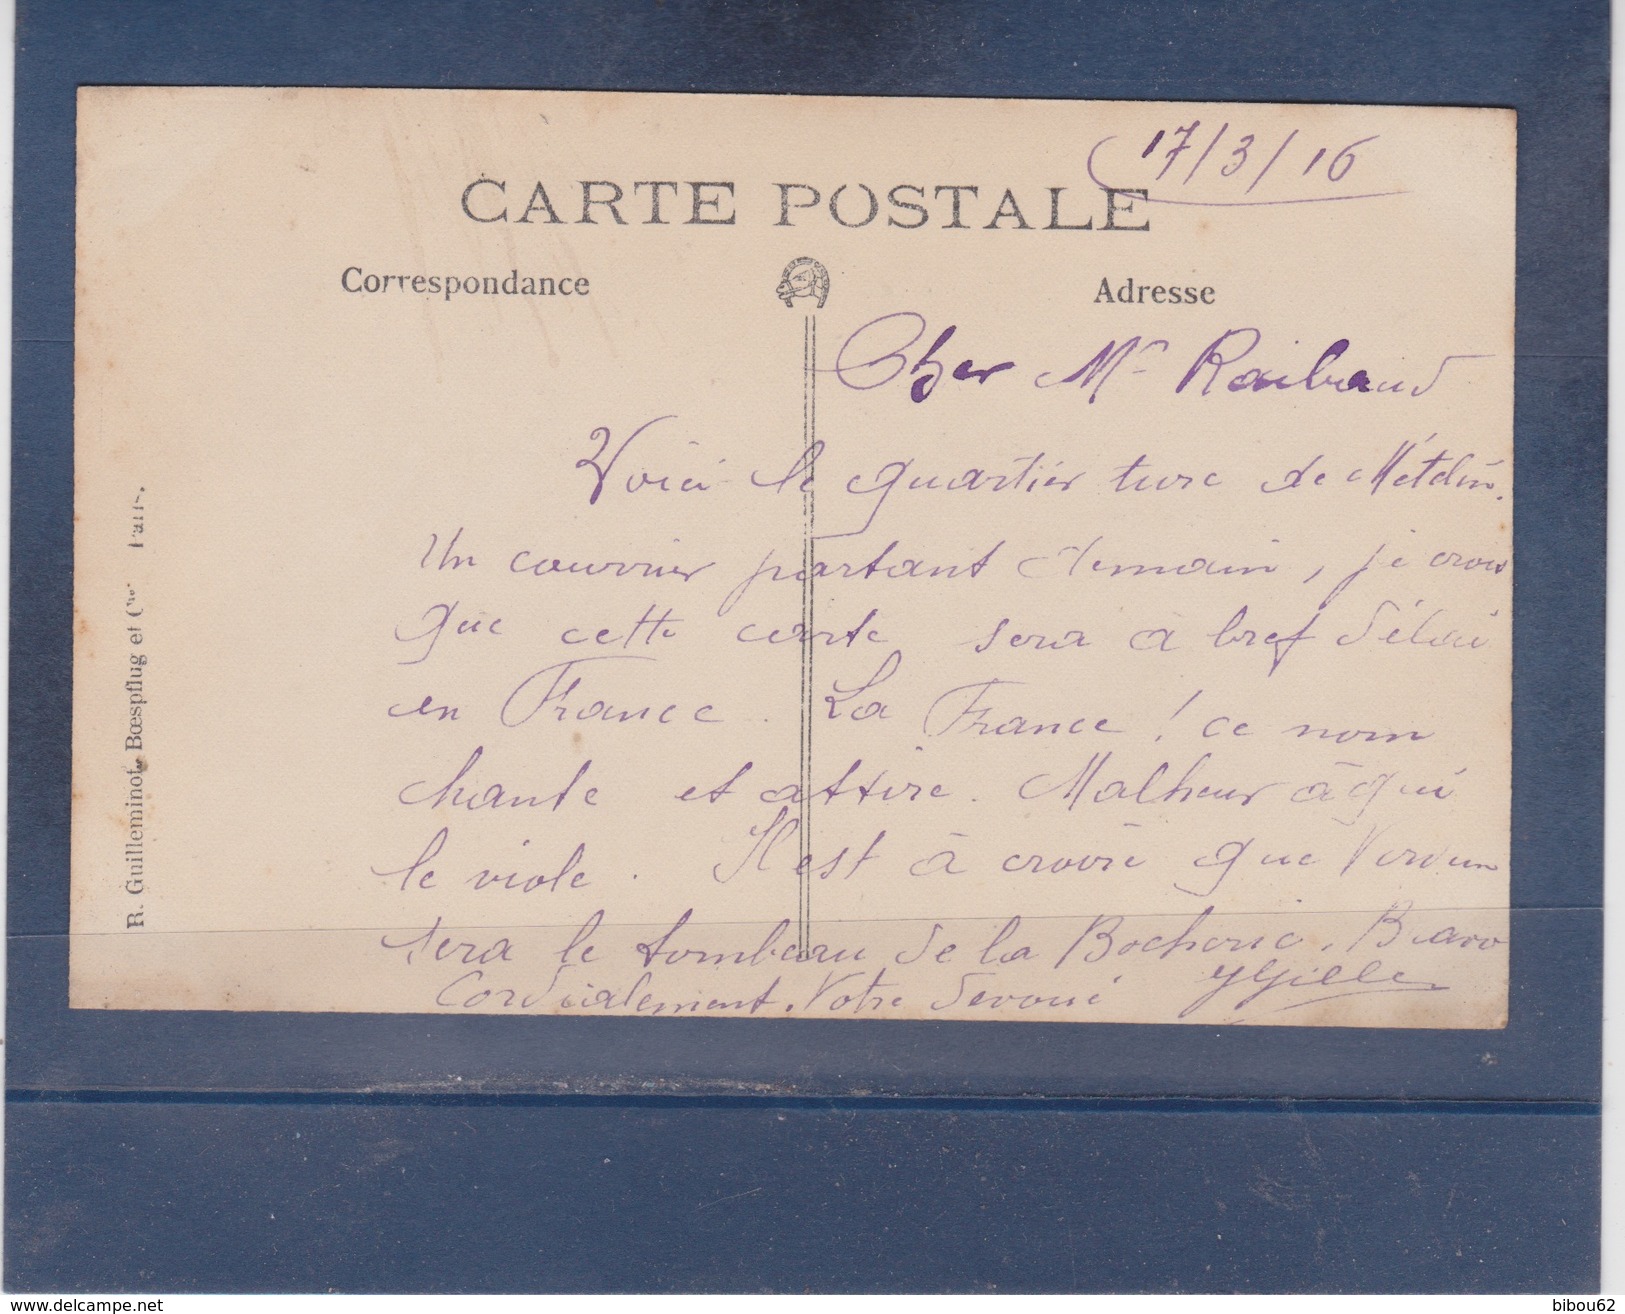 17/3/16
CARTE POSTALE
Correspondance
Adresse
Cher Mr Raibaud
Voici le quartier turc de Métélin.
Un courrier partant demain, je crois
que cette carte sera à bref délai
en France. La France ! ce nom
chante et attire. Malheur à qui
le viole. Il est à croire que Verdun
sera le tombeau de la Bocherie. Bravo
Cordialement. Votre dévoué
R. Guilleminot, Bœspflug et Cie Paris.
delcampe.net
bibou62